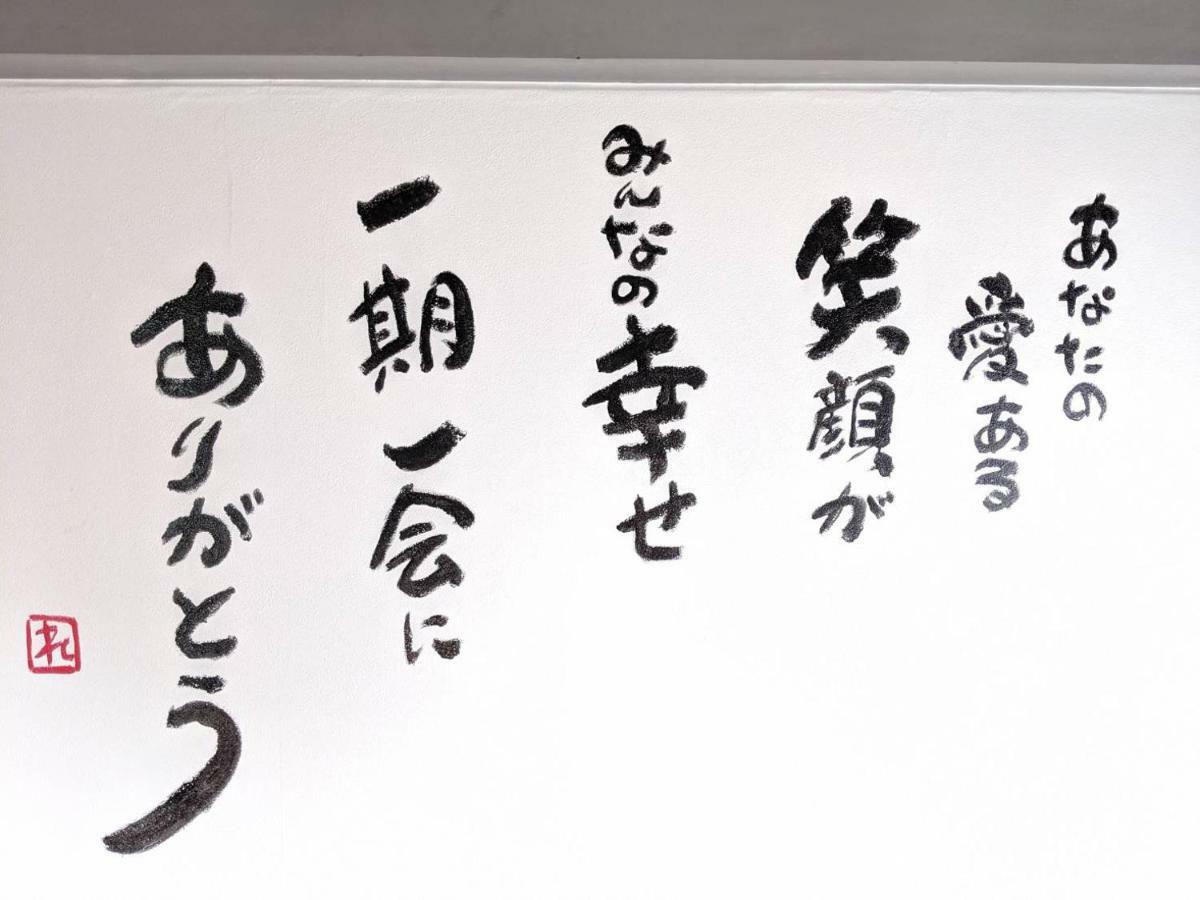 あなたの
愛ある
笑顔が
みんなの幸せ
一期一会に
ありがとう
れ